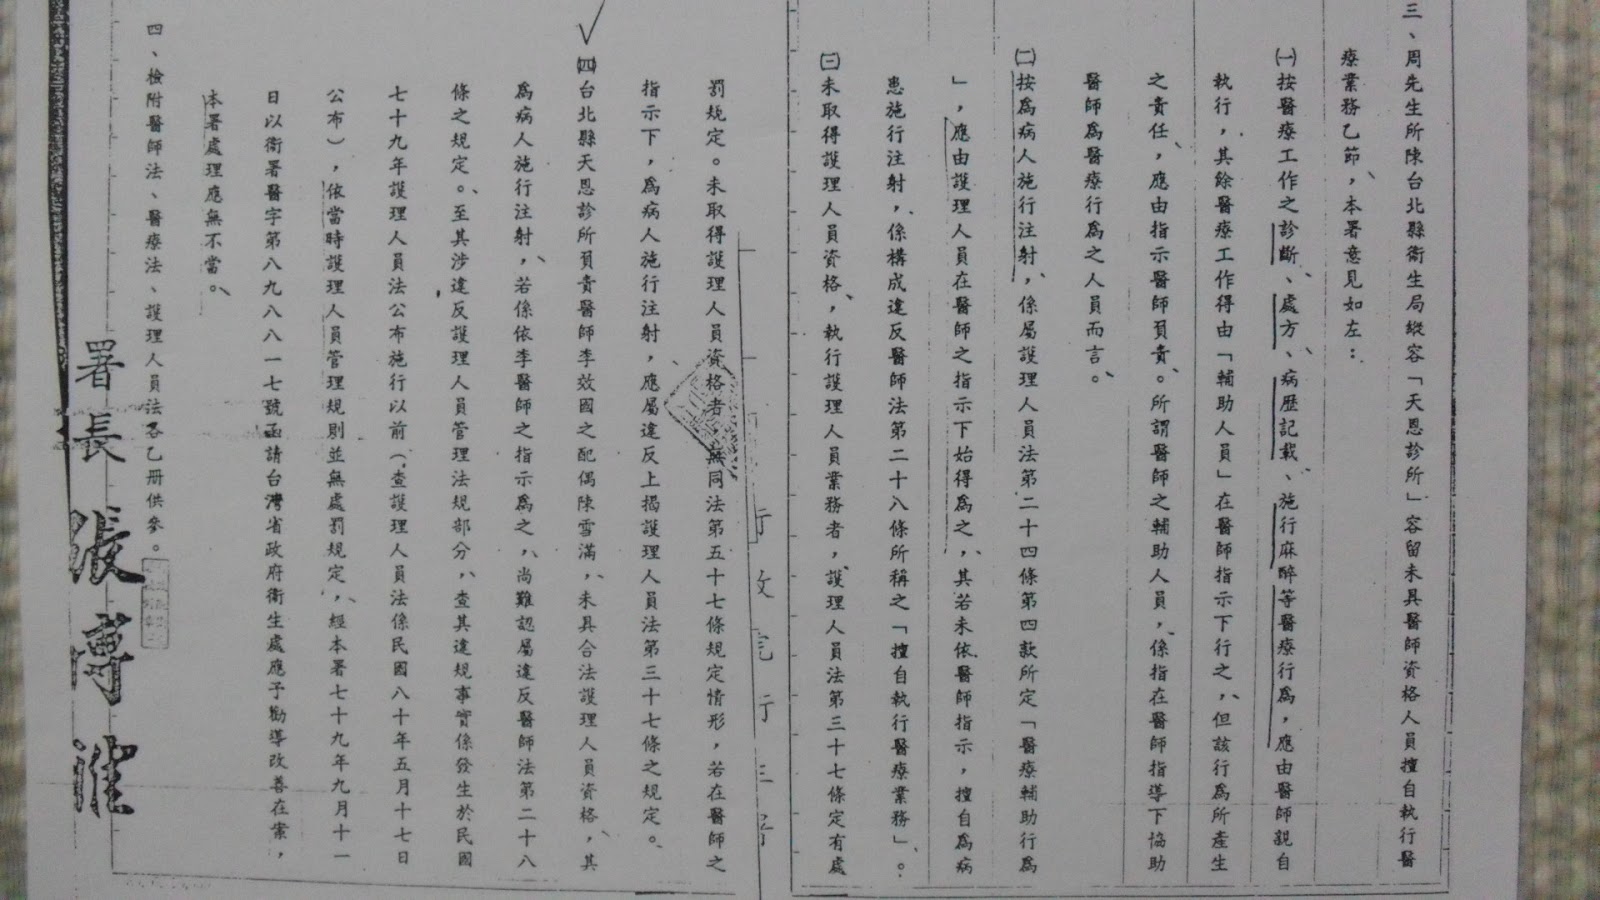 三、周先生所陳台北縣衛生局縱容「天恩診所」容留未具醫師資格人員擅自執行醫
療業務乙節，本署意見如左：
㈠按醫療工作之診斷、處方、病歷記載、施行麻醉等醫療行為，應由醫師親自
執行，其餘醫療工作得由「輔助人員」在醫師指示下行之，但該行為所產生
之責任，應由指示醫師負責。所謂醫師之輔助人員，係指在醫師指導下協助
醫師為醫療行為之人員而言。
㈡按為病人施行注射，係屬護理人員法第二十四條第四款所定「醫療輔助行為
」，應由護理人員在醫師之指示下始得為之，其若未依醫師指示，擅自為病
患施行注射，係構成違反醫師法第二十八條所稱之「擅自執行醫療業務」。
㈢未取得護理人員資格，執行護理人員業務者，護理人員法第三十七條定有處
罰規定。未取得護理人員資格者，無同法第五十七條規定情形，若在醫師之
指示下，為病人施行注射，應屬違反上揭護理人員法第三十七條之規定。
㈣台北縣天恩診所負責醫師李效國之配偶陳雪滿，未具合法護理人員資格，其
為病人施行注射，若係依李醫師之指示為之，尚難認屬違反醫師法第二十八
條之規定。至其涉違反護理人員管理法規部分，查其違規事實係發生於民國
七十九年護理人員法公布施行以前（查護理人員法係民國八十年五月十七日
公布），依當時護理人員管理規則並無處罰規定，經本署七十九年九月十一
日以衛署醫字第八九八八一七號函請台灣省政府衛生處應予勸導改善在案，
本署處理應無不當。
四、檢附醫師法、醫療法、護理人員法各乙冊供參。
署長 張博雅